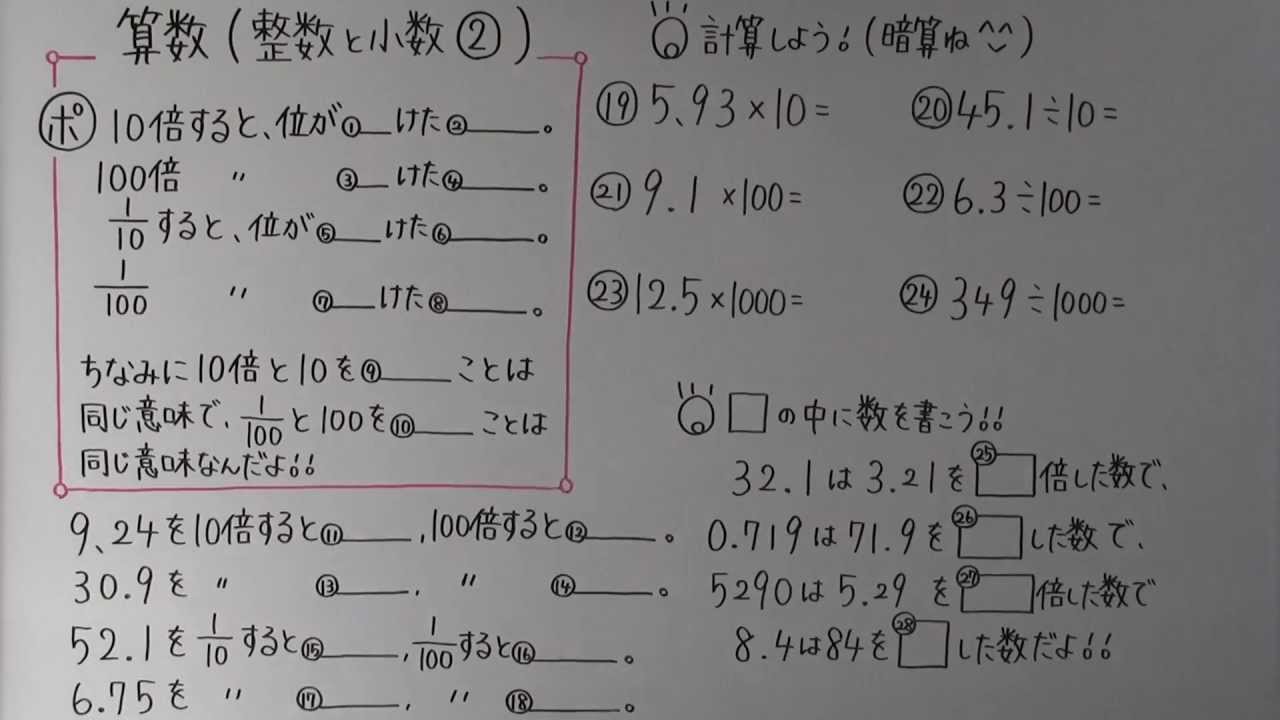 算数(整数と小数②)
ポ 10倍すると、位が①__けた②____。
100倍 〃 ③__けた④____。
1/10すると、位が⑤__けた⑥____。
1/100 〃 ⑦__けた⑧____。
ちなみに10倍と10を⑨____ことは
同じ意味で、1/100と100を⑩____ことは
同じ意味なんだよ!!
9、24を10倍すると⑪____,100倍すると⑫____。
30.9を 〃 ⑬____, 〃 ⑭____。
52.1を1/10すると⑮____,1/100すると⑯____。
6.75を 〃 ⑰____, 〃 ⑱____。
計算しよう!(暗算ね^^)
⑲5、93×10= ⑳45.1÷10=
㉑9.1×100= ㉒6.3÷100=
㉓12.5×1000= ㉔349÷1000=
□の中に数を書こう!!
32.1は3.21を㉕□倍した数で、
0.719は71.9を㉖□した数で、
5290は5.29を㉗□倍した数で
8.4は84を㉘□した数だよ!!